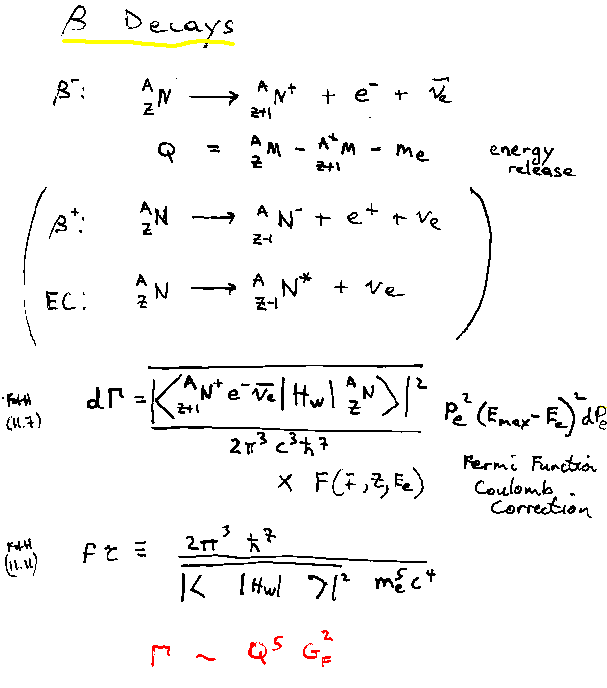 β Decays
β⁻: ᴬ_Z N → ᴬ_{Z+1} N⁺ + e⁻ + ν̄e
Q = ᴬ_Z M − ᴬ⁺_{Z+1} M − me energy release
β⁺: ᴬ_Z N → ᴬ_{Z-1} N⁻ + e⁺ + νe
EC: ᴬ_Z N → ᴬ_{Z-1} N* + νe
(11.7) dΓ = |⟨ᴬ_{Z+1} N⁺ e⁻ ν̄e | Hw | ᴬ_Z N⟩|² / 2π³ c³ ħ⁷ Pe² (Emax − Ee)² dPe
× F(∓, Z, Ee) Fermi Function
Coulomb
Correction
(11.11) Fτ ≡ 2π³ ħ⁷ / |⟨ |Hw| ⟩|² me⁵ c⁴
Γ ~ Q⁵ G_F²